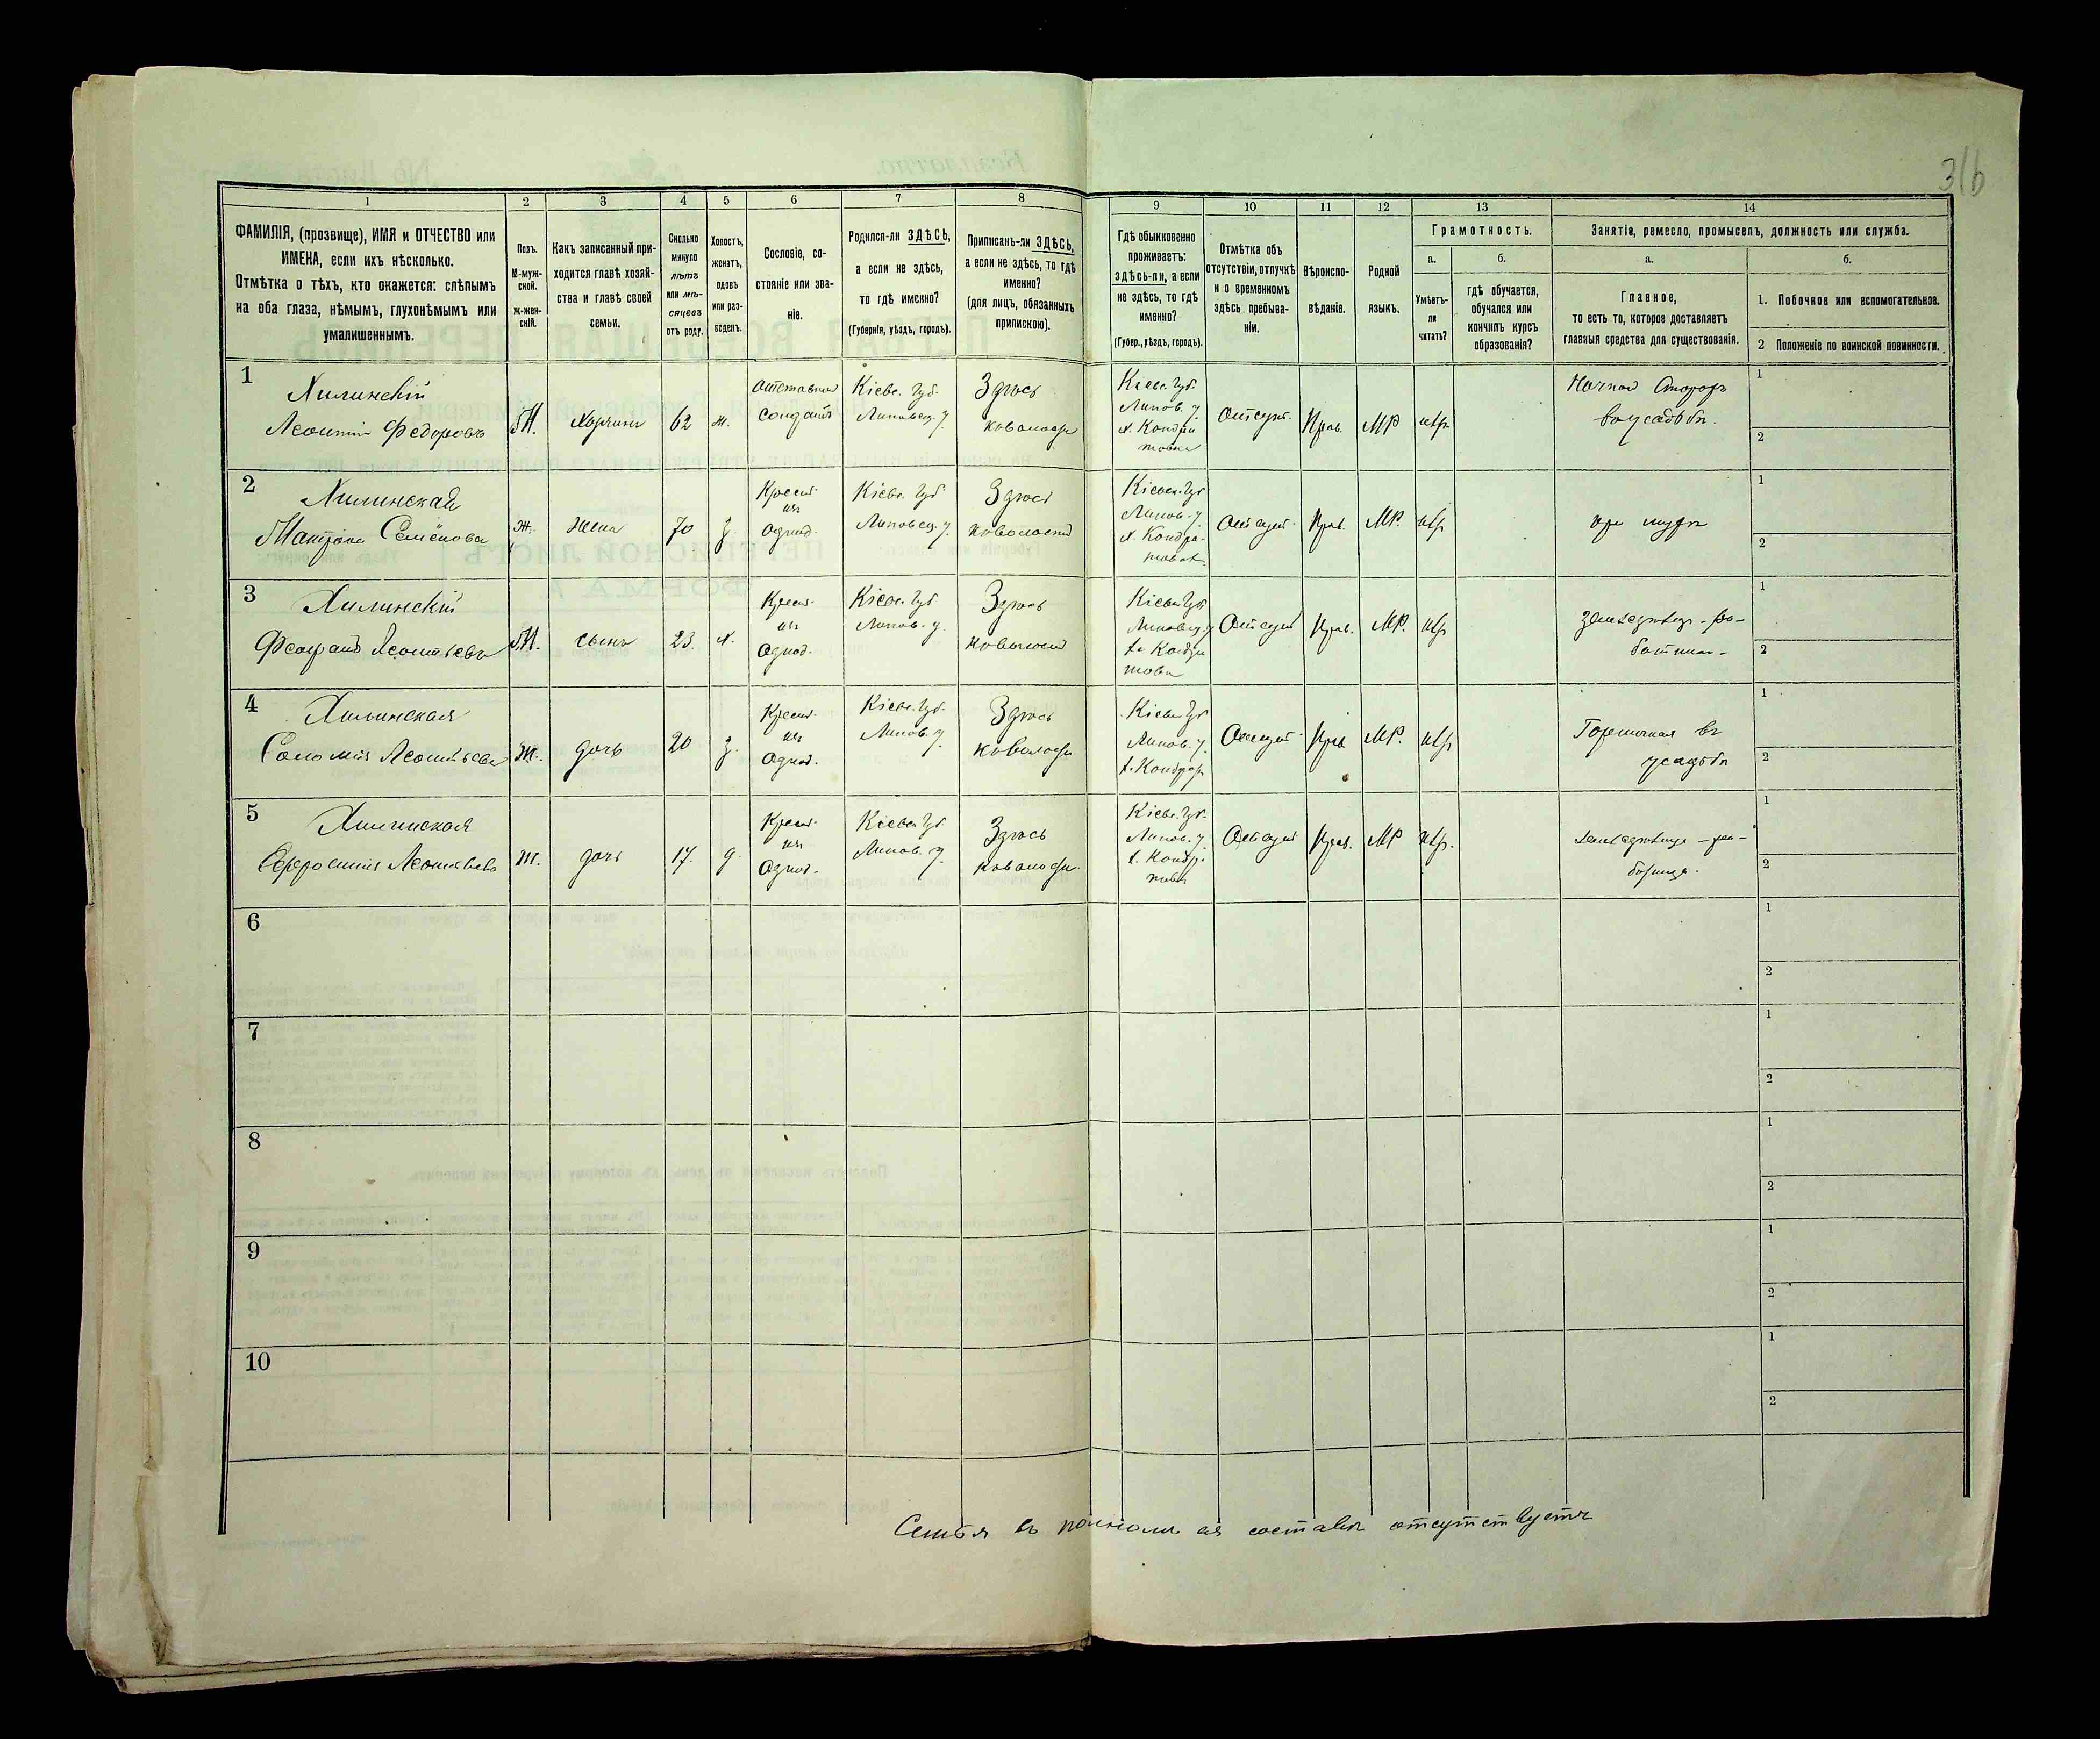 316
1 2 3 4 5 6 7 8 9 10 11 12 13 14
ФАМИЛІЯ, (прозвище), ИМЯ и ОТЧЕСТВО или
ИМЕНА, если ихъ нѣсколько.
Отмѣтка о тѣхъ, кто окажется: слѣпымъ
на оба глаза, нѣмымъ, глухонѣмымъ или
умалишеннымъ.
Полъ.
М-муж-
ской.
Ж-жен-
скій.
Какъ записанный при-
ходится главѣ хозяй-
ства и главѣ своей
семьи.
Сколько
минуло
лѣтъ
или мѣ-
сяцевъ
отъ роду.
Холостъ,
женатъ,
вдовъ
или раз-
веденъ.
Сословіе, со-
стояніе или зва-
ніе.
Родился-ли ЗДѢСЬ,
а если не здѣсь,
то гдѣ именно?
(Губернія, уѣздъ, городъ).
Приписанъ-ли ЗДѢСЬ,
а если не здѣсь, то гдѣ
именно?
(для лицъ, обязанныхъ
припискою).
Гдѣ обыкновенно
проживаетъ:
здѣсь-ли, а если
не здѣсь, то гдѣ
именно?
(Губер., уѣздъ, городъ).
Отмѣтка объ
отсутствіи, отлучкѣ
и о временномъ
здѣсь пребыва-
ніи.
Вѣроиспо-
вѣданіе.
Родной
языкъ.
Грамотность.
а.
Умѣетъ-
ли
читать?
б.
гдѣ обучается,
обучался или
кончилъ курсъ
образованія?
Занятія, ремесло, промыселъ, должность или служба.
а.
Главное,
то есть то, которое доставляетъ
главныя средства для существованія.
б.
1. Побочное или вспомогательное.
2 Положеніе по воинской повинности.
1
Хилинскій
Леонтій Федоровъ
М.
Хозяинъ
62
ж.
отставной
солдатъ
Кіевс. Губ.
Липовец. у.
Здѣсь
Кіевс. Губ.
Липов. у.
Отсут.
Прав.
МР
нѣтъ
Ночной Сторожъ
1
2
2
Хилинская
Матрона Семенова
Ж.
жена
70
з.
Крест.
изъ
Однод.
Кіевс. Губ
Липовец. у.
Здѣсь
Кіевск. Губ
Липов. у.
Отсут.
Прав.
МР.
нѣтъ
при мужѣ
1
2
3
Хилинскій
Леонтьевъ
М.
сынъ
23.
х.
Крест.
изъ
Однод.
Кіевс. Губ.
Липов. у.
Здѣсь
Кіевск Губ
Липовец. у
Отсут
Прав.
МР.
нѣтъ
1
2
4
Хилинская
Соломія Леонтьева
Ж.
дочь
20
з.
Крест.
изъ
Однод.
Кіевс. Губ.
Липов. у.
Здѣсь
Кіевск Губ
Липов. у.
Отсут
Прав
МР.
нѣтъ
Горничная въ
усадьбѣ
1
2
5
Хилинская
Ефросинія Леонтьева
Ж.
дочь
17.
д.
Крест.
изъ
Однод.
Кіевск Губ
Липов. у.
Здѣсь
Кіевс. Губ.
Липов. у.
Отсут
Прав.
МР
нѣтъ.
1
2
6
1
2
7
1
2
8
1
2
9
1
2
10
1
2
Семья въ полномъ ея составѣ отсутствуетъ